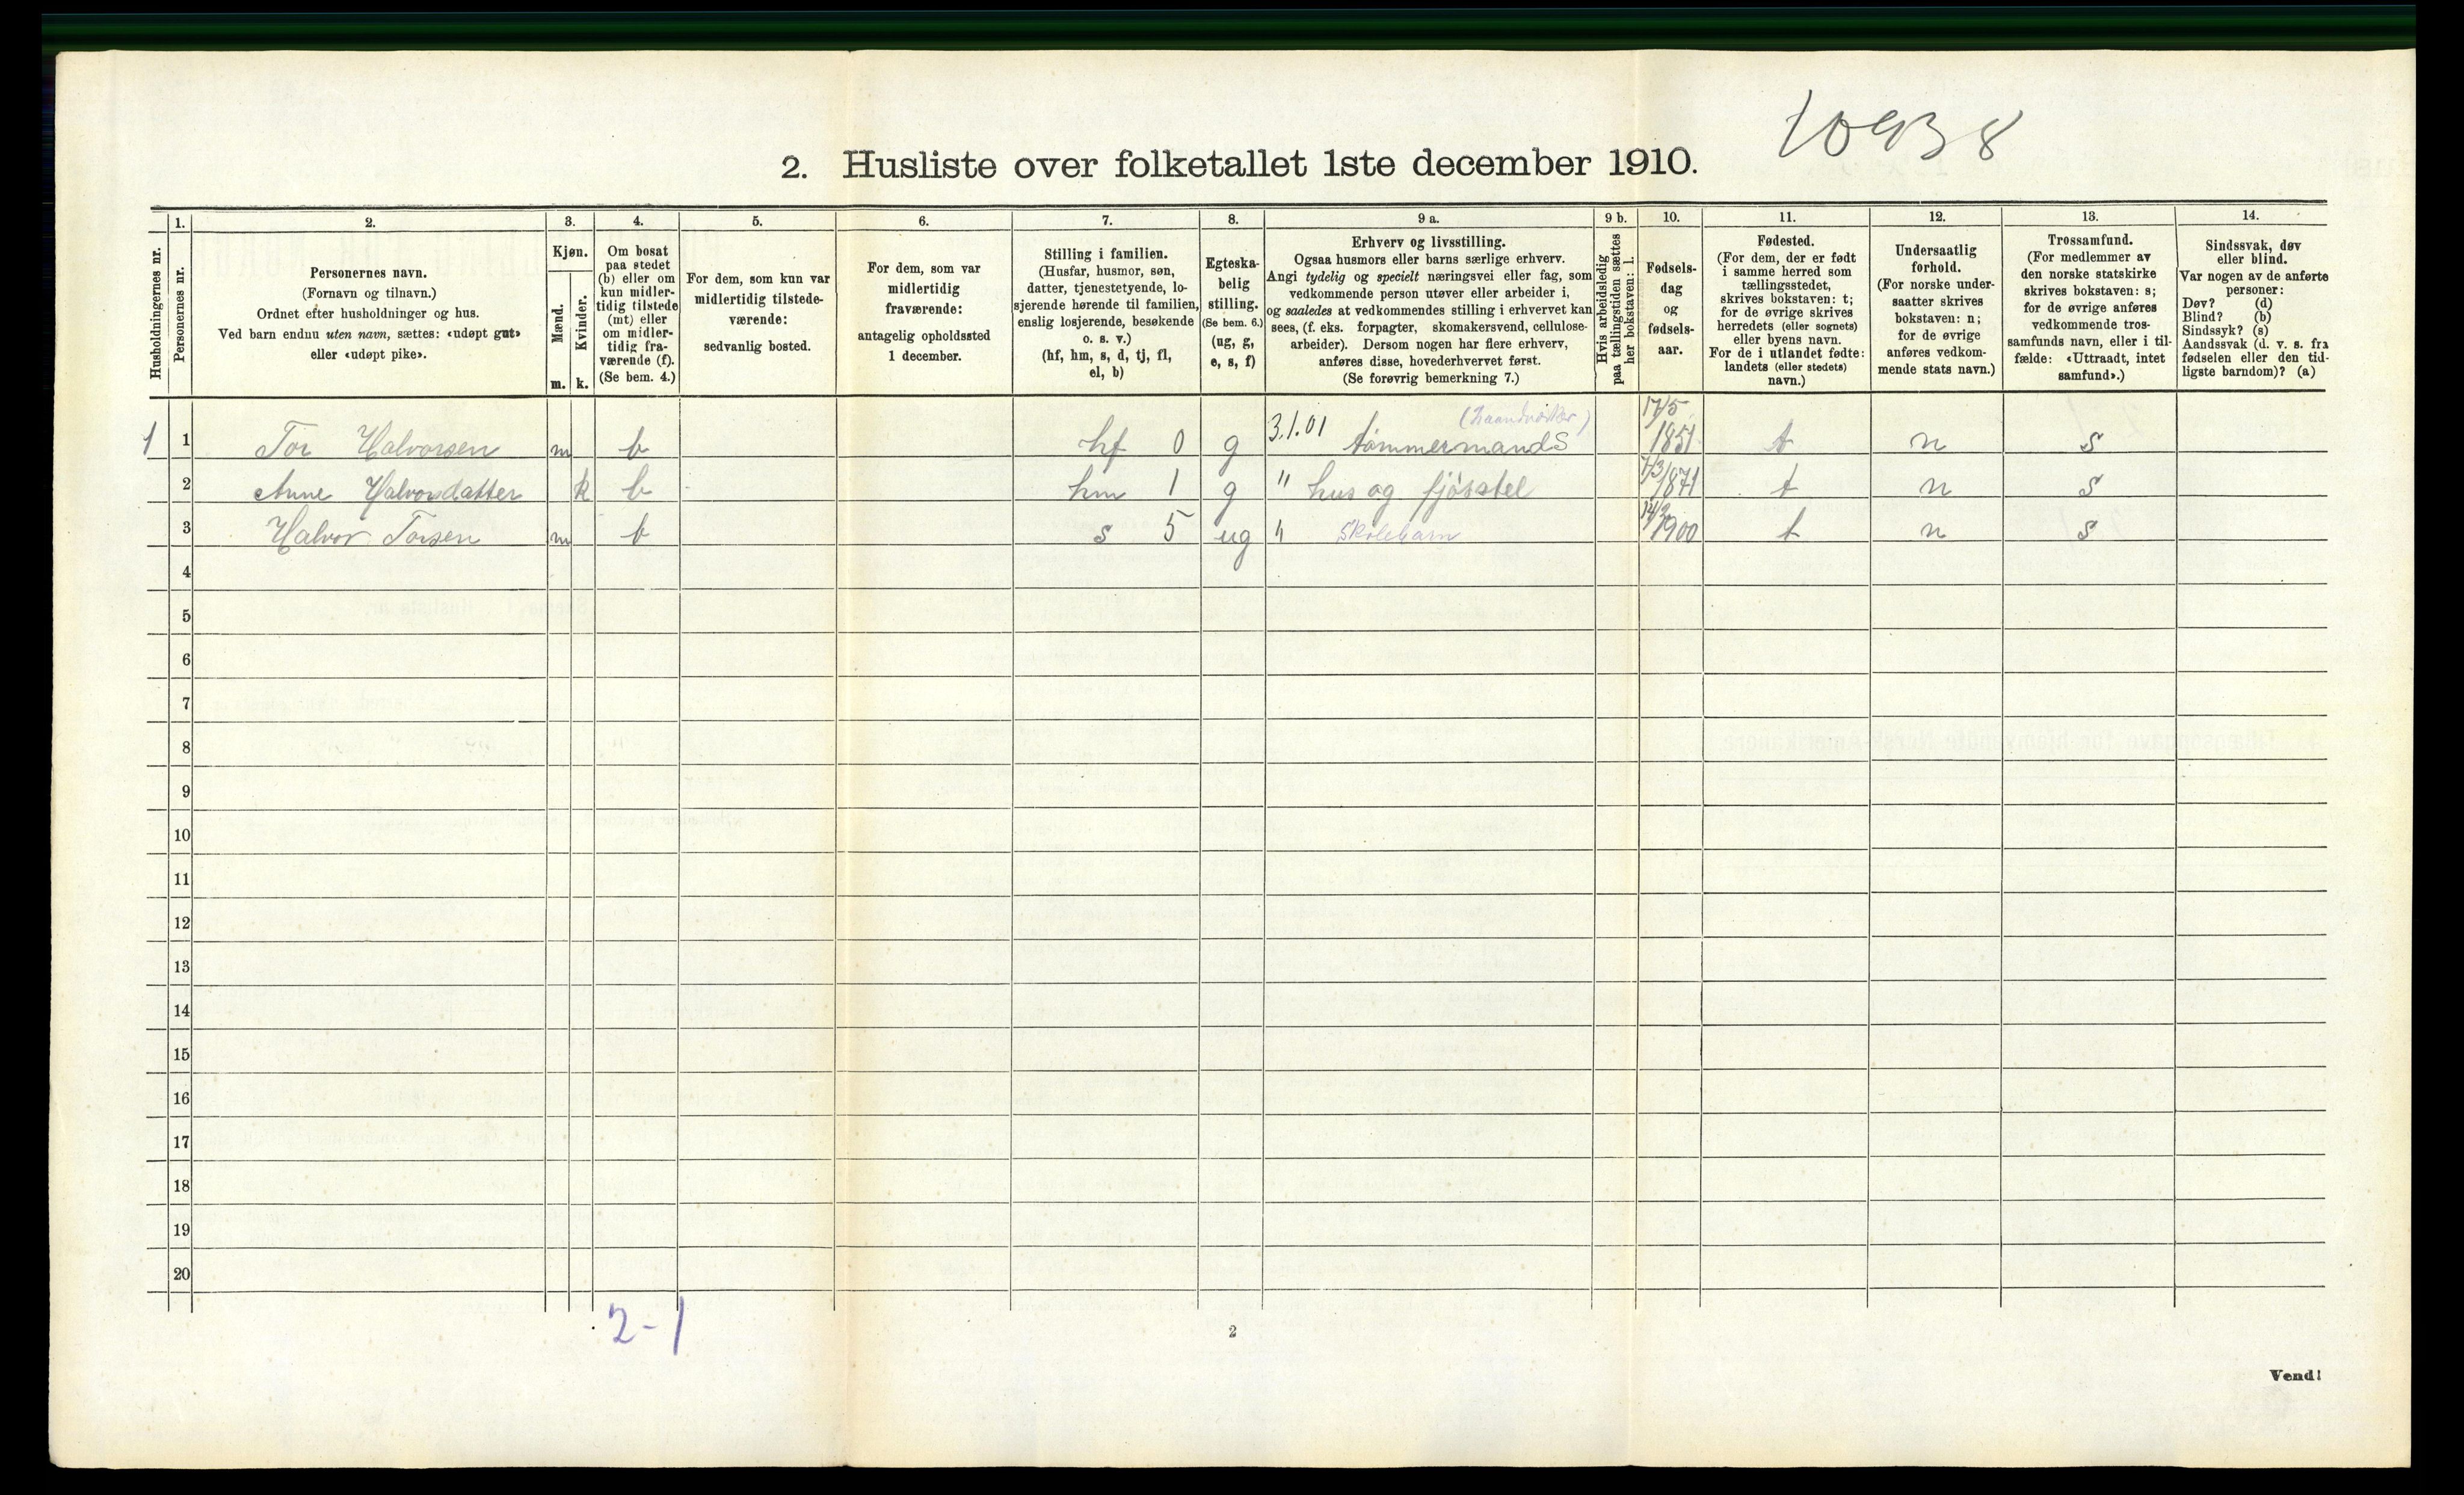 10938
2. Husliste over folketallet 1ste december 1910.
Husholdningernes nr.
1.
Personernes nr.
2.
Personernes navn.
(Fornavn og tilnavn.)
Ordnet efter husholdninger og hus.
Ved barn endnu uten navn, sættes: «udøpt gut»
eller «udøpt pike».
3.
Kjøn.
Mænd.
Kvinder.
m. k.
4.
Om bosat
paa stedet
(b) eller om
kun midler-
tidig tilstede
(mt) eller
om midler-
tidig fra-
værende (f).
(Se bem. 4.)
5.
For dem, som kun var
midlertidig tilstede-
værende:
sedvanlig bosted.
6.
For dem, som var
midlertidig
fraværende:
antagelig opholdssted
1 december.
7.
Stilling i familien.
(Husfar, husmor, søn,
datter, tjenestetyende, lo-
sjerende hørende til familien,
enslig losjerende, besøkende
o. s. v.)
(hf, hm, s, d, tj, fl,
el, b)
8.
Egteska-
belig
stilling.
(Se bem. 6.)
(ug, g,
e, s, f)
9 a.
Erhverv og livsstilling.
Ogsaa husmors eller barns særlige erhverv.
Angi tydelig og specielt næringsvei eller fag, som
vedkommende person utøver eller arbeider i,
og saaledes at vedkommendes stilling i erhvervet kan
sees, (f. eks. forpagter, skomakersvend, cellulose-
arbeider). Dersom nogen har flere erhverv,
anføres disse, hovederhvervet først.
(Se forøvrig bemerkning 7.)
9 b.
Hvis arbeidsledig
paa tællingstiden sættes
her bokstaven: l.
10.
Fødsels-
dag
og
fødsels-
aar.
11.
Fødested.
(For dem, der er født
i samme herred som
tællingsstedet,
skrives bokstaven: t;
for de øvrige skrives
herredets (eller sognets)
eller byens navn.
For de i utlandet fødte:
landets (eller stedets)
navn.)
12.
Undersaatlig
forhold.
(For norske under-
saatter skrives
bokstaven: n;
for de øvrige
anføres vedkom-
mende stats navn.)
13.
Trossamfund.
(For medlemmer av
den norske statskirke
skrives bokstaven: s;
for de øvrige anføres
vedkommende tros-
samfunds navn, eller i til-
fælde: «Uttraadt, intet
samfund».)
14.
Sindssvak, døv
eller blind.
Var nogen av de anførte
personer:
Døv? (d)
Blind? (b)
Sindssyk? (s)
Aandssvak (d. v. s. fra
fødselen eller den tid-
ligste barndom)? (a)
(haandverker) 17/5
1 1 Tor Halvorsen m b hf 0 g 3.1.01 tømmermands 1851 t n s
2 Anne Halvorsdatter k b hm 1 g " hus og fjøsstel 7/3 1871 t n s
3 Halvor Torsen m b s 5 ug " Skolebarn 1900 t n s
4
5
6
7
8
9
10
11
12
13
14
15
16
17
18
19
20
2-1
2
Vend!